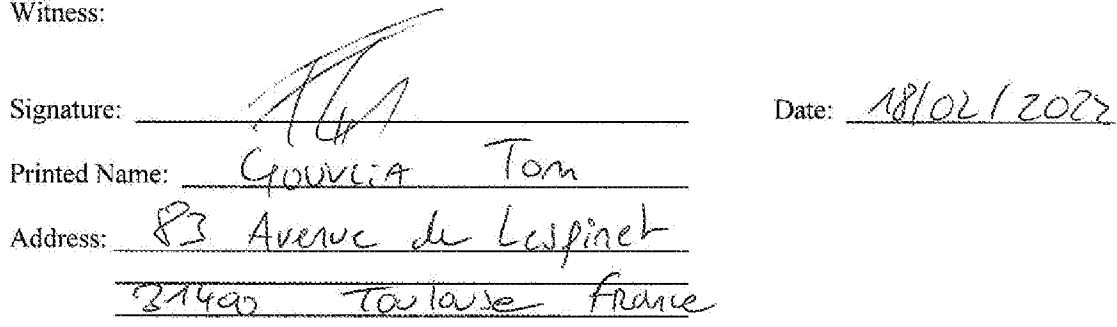 Witness:
Signature: Date: 18/02/2022
Printed Name: GOUVEIA Tom
Address: 83 Avenue de Lespinet
31400 Toulouse France